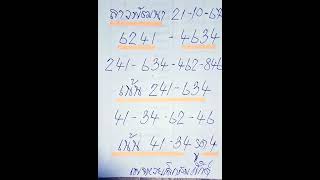 ลาวพัฒนา 21-10-67
6241 - 4634
241-634-462-846
เน้น 241-634
41-34-62-46
เน้น 41-34